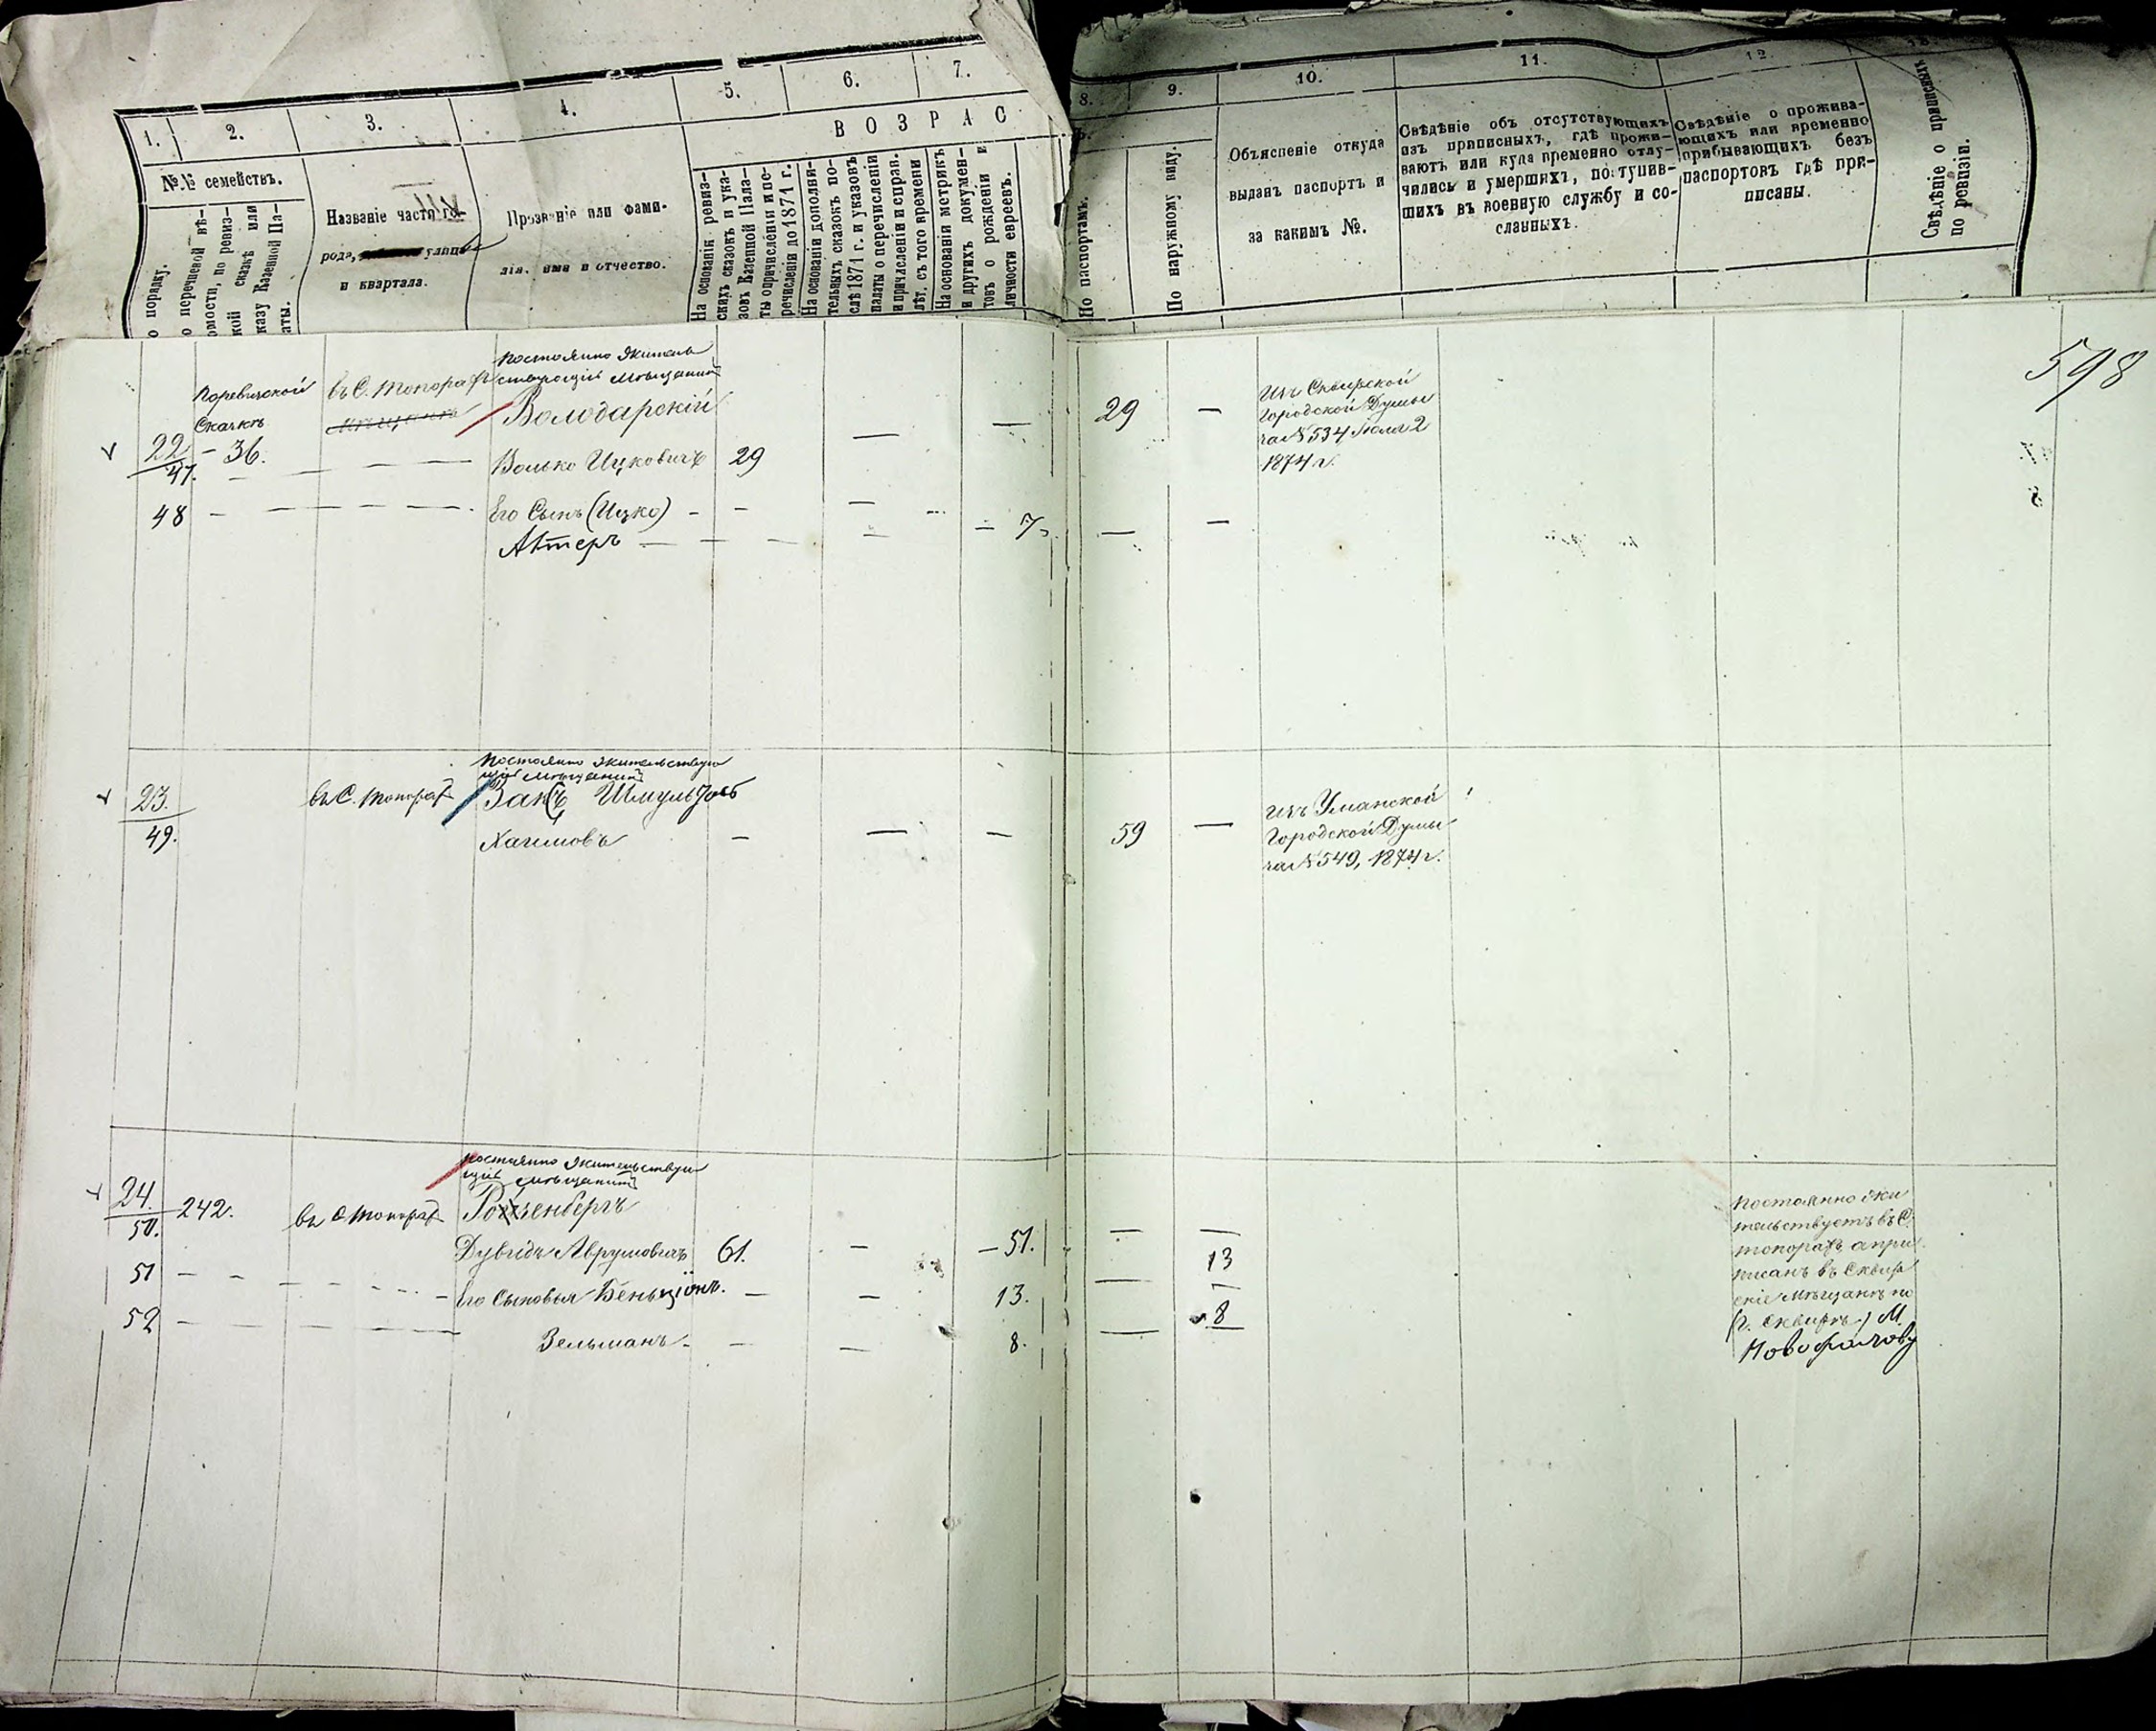 1.
2.
3.
4.
5.
6.
7.
8.
9.
10.
11.
12.
13.
ВОЗРАС
№№ семействъ.
Названіе части го-
рода, улицы
и квартала.
Прозваніе или фами-
лія, имя и отчество.
о порядку.
о перечневой вѣ-
омости, по ревиз-
кой сказкѣ или
казу Казенной Па-
аты.
На основаніи ревиз-
скихъ сказокъ и ука-
зовъ Казенной Пала-
ты о причисленіи и пе-
речисленіи до 1871 г.
На основаніи дополни-
тельныхъ сказокъ по-
слѣ 1871 г. и указовъ
палаты о перечисленіи
и причисленіи и справ.
лѣт. съ того времени
На основаніи метрикъ
и другихъ докумен-
товъ о рожденіи и
личности евреевъ.
По паспортамъ.
По наружному виду.
Объясненіе откуда
выданъ паспортъ и
за какимъ №.
Свѣдѣніе объ отсутствующихъ
изъ приписныхъ, гдѣ прожи-
ваютъ или куда временно отлу-
чились и умершихъ, поступив-
шихъ въ военную службу и со-
сланныхъ.
Свѣдѣніе о прожива-
ющихъ или временно
прибывающихъ безъ
паспортовъ гдѣ при-
писаны.
Свѣдѣніе о приписныхъ
по ревизіи.
598
Поревизской
Сказкѣ
22 – 36.
47.
въ С. Топорахъ
постоянно жительствующій мѣщанинъ
Володарскій
Волько Ицковичъ 29
29 —
изъ Сквирской
Городской Думы
за №534 Іюля 2
1874 г.
48
Его Сынъ (Ицко)
Автеръ
7
23.
49.
въ С. Топорахъ
постоянно жительствую
щій мѣщанинъ
Закъ Шмуль Іосъ
Хаимовъ
59 —
изъ Уманской
Городской Думы
за №549, 1874 г.
24. 242.
50.
въ С Топорахъ
постоянно жительствую
щій мѣщанинъ
Розенбергъ
Дувидъ Аврумовичъ 61. — 51.
51
Его Сыновья Беньціонъ. 13. 13
52
Зельманъ 8. 8
постоянно жи
тельствуетъ въ С.
топорахъ а при
писанъ въ Сквир
скіе мѣщане по
(г. Сквирѣ) М.